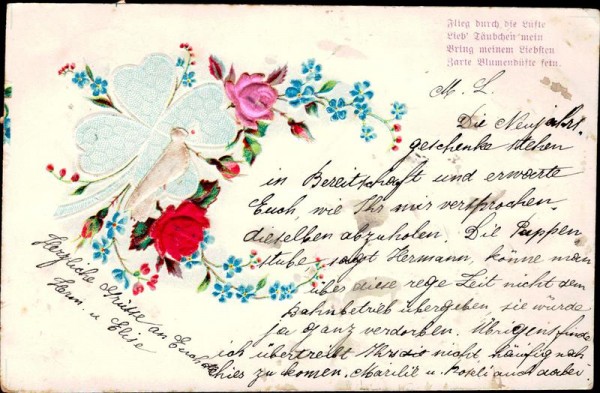 Flieg durch die Lüfte
Lieb' Täubchen mein
Bring meinem Liebsten
Zarte Blumendüfte fein.
M. L.
Die Neujahrs-
geschenke stehen
in Bereitschaft und erwarte
Euch, wie Ihr mir versprochen
dieselben abzuholen. Die Puppen
stube, sagt Hermann, könne man
über diese rege Zeit nicht dem
Bahnbetrieb übergeben, sie würde
ja ganz verdorben. Übrigens finde
ich übertreibt Ihr nicht häufig nach
hier zu komen. u. auch dabei.
Herzliche Grüsse an Euch
Herm. u. Elise